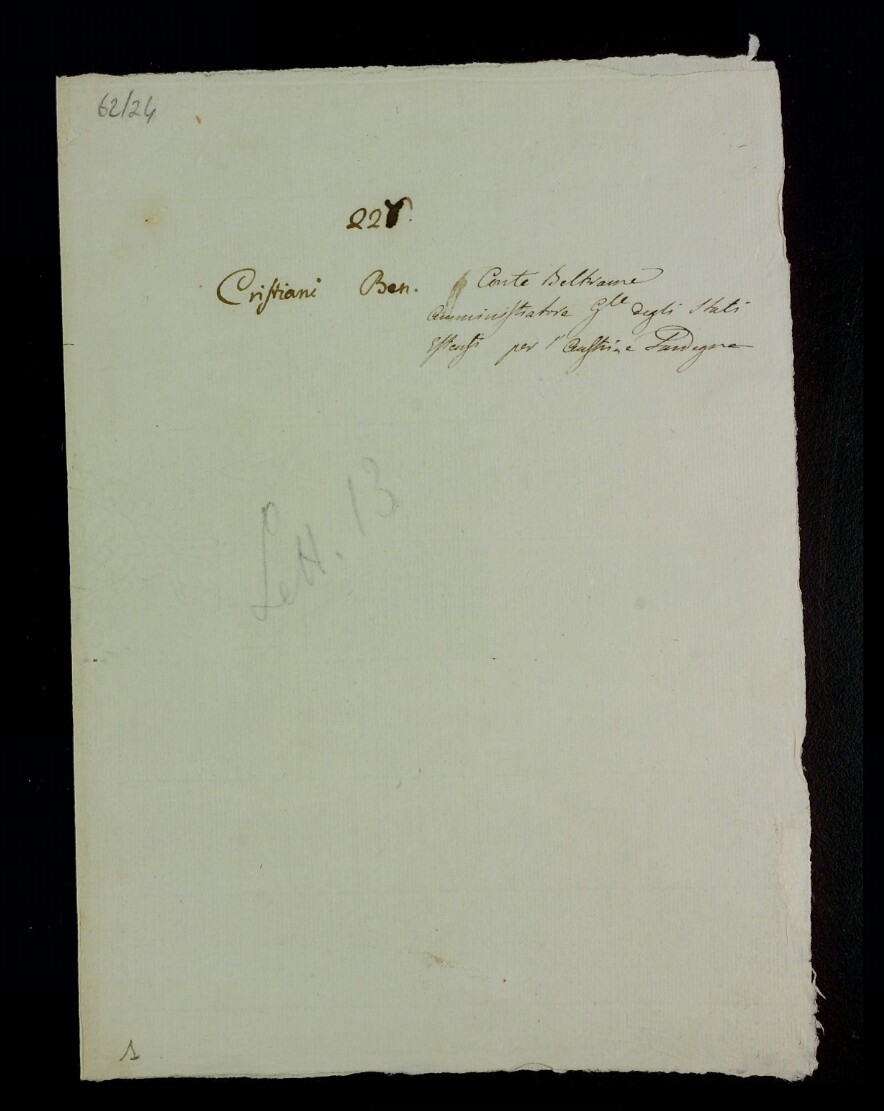 62/24
22
Cristiani Ben. Conte Beltrame
Amministratore Gle degli Stati
Estensi per l'Austria e Sardegna
Lett. 13
1